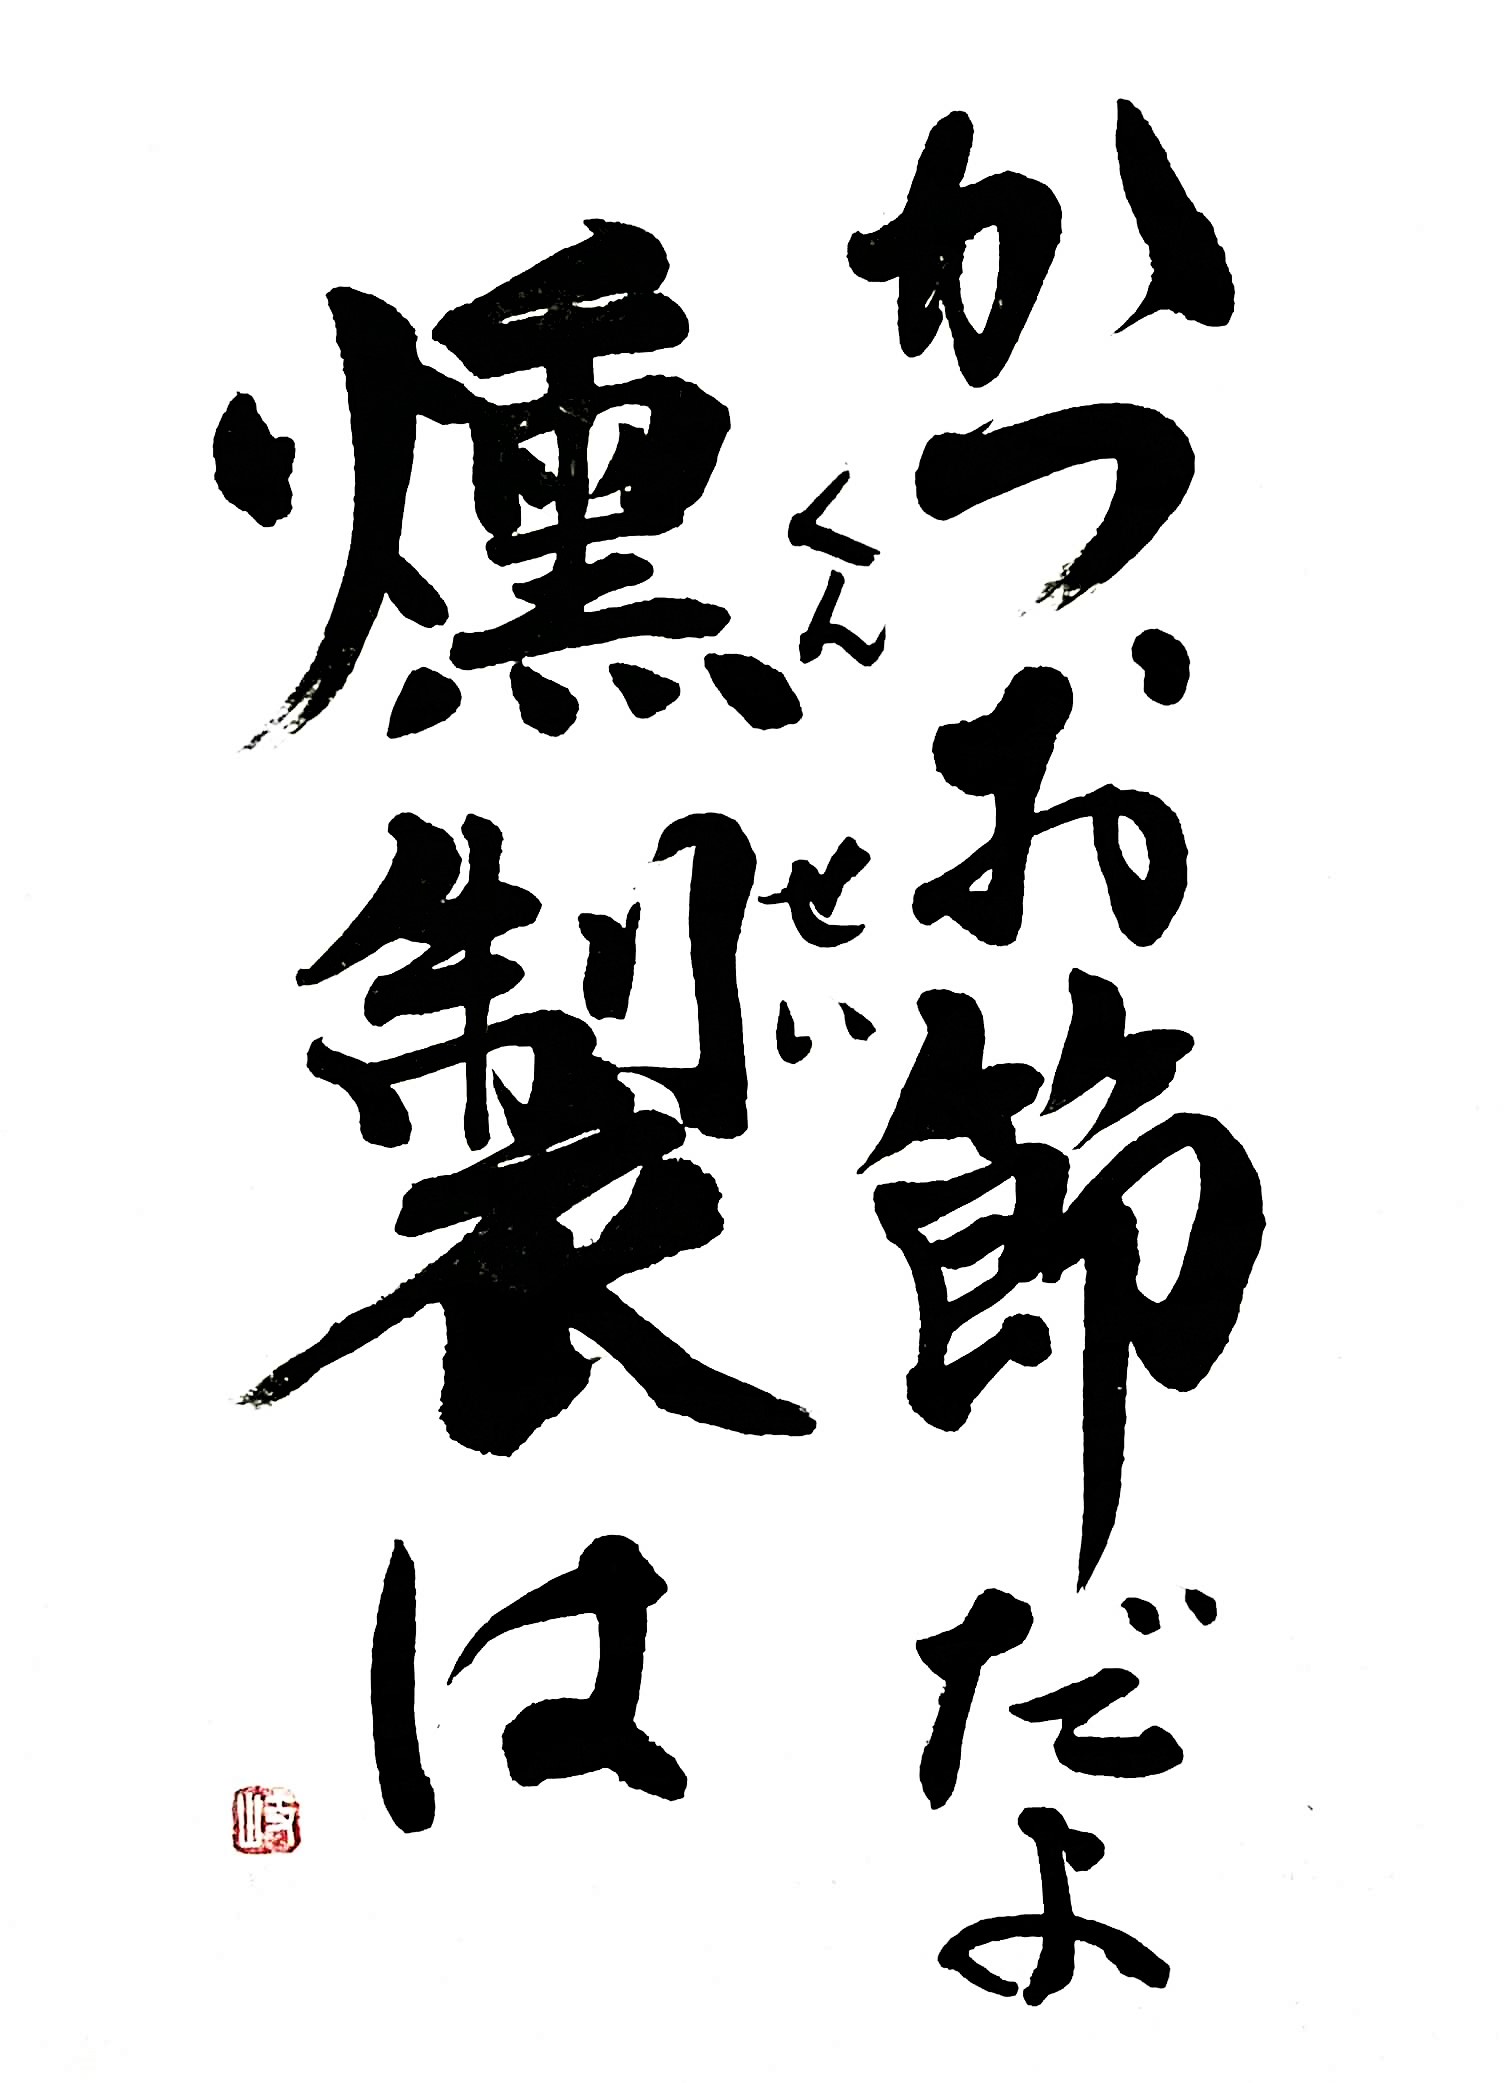 かつお節だよ
燻製は
くんせい
岐